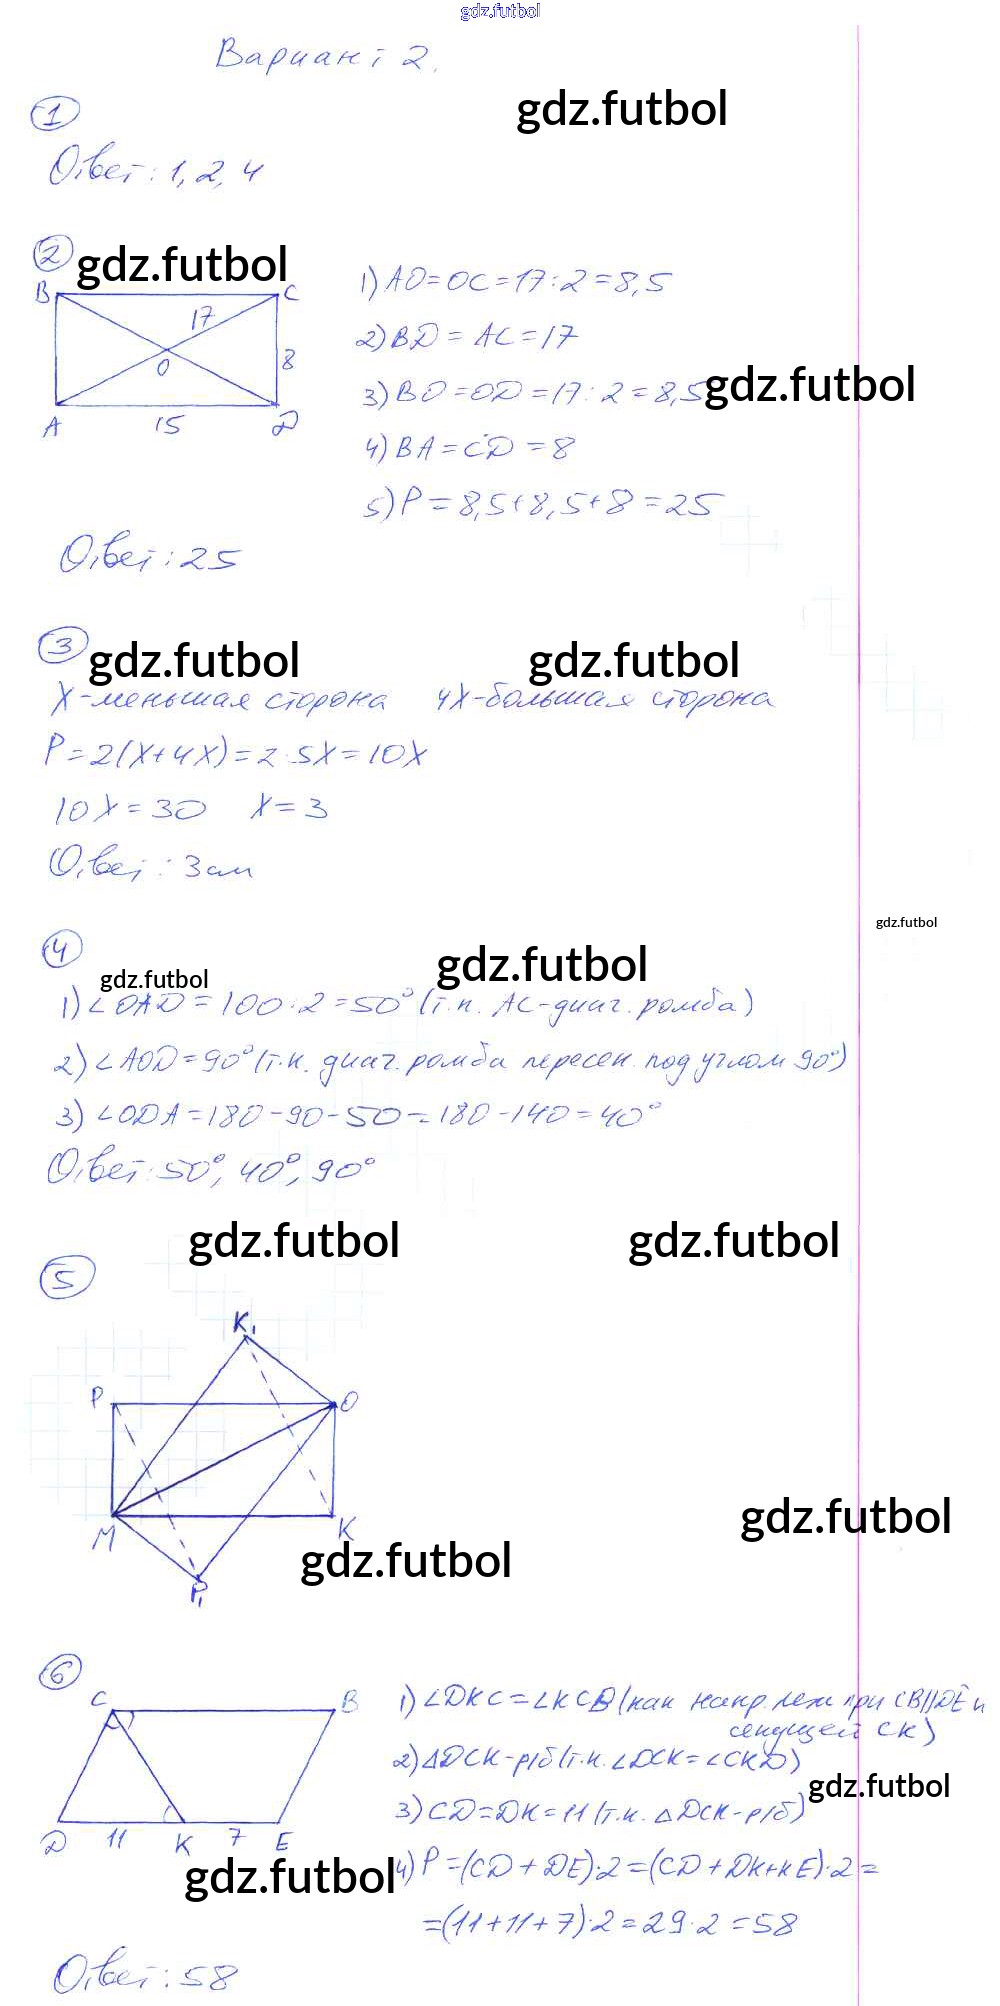 gdz.futbol
Вариант 2.
gdz.futbol
1
Ответ: 1, 2, 4
2
gdz.futbol
B C
17
O
8
A 15 D
1) AO=OC=17:2=8,5
2) BD = AC = 17
3) BO=OD=17:2=8,5
gdz.futbol
4) BA=CD=8
5) P=8,5+8,5+8=25
Ответ: 25
3
gdz.futbol gdz.futbol
X-меньшая сторона 4X-большая сторона
P=2(X+4X)=2·5X=10X
10X=30 X=3
Ответ: 3см
gdz.futbol
4
gdz.futbol
gdz.futbol
1) ∠OAD=100:2=50° (т.к. AC-диаг. ромба)
2) ∠AOD=90° (т.к. диаг. ромба пересек. под углом 90°)
3) ∠ODA=180-90-50=180-140=40°
Ответ: 50°, 40°, 90°
gdz.futbol gdz.futbol
5
K₁
P O
M K
P₁
gdz.futbol
gdz.futbol
6
C B
D 11 K 7 E
1) ∠DKC=∠KCB (как накр. леж при CB||DE и
секущей CK)
2) ΔDCK-р/б (т.к. ∠DCK=∠CKD)
gdz.futbol
3) CD=DK=11 (т.к. ΔDCK-р/б)
gdz.futbol
4) P=(CD+DE)·2=(CD+DK+KE)·2=
=(11+11+7)·2=29·2=58
Ответ: 58